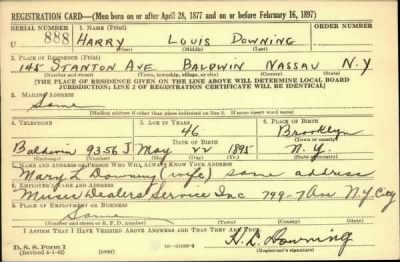 REGISTRATION CARD—(Men born on or after April 28, 1877 and on or before February 16, 1897)
SERIAL NUMBER 1. NAME (Print) ORDER NUMBER
U 888 HARRY LOUIS DOWNING
(First) (Middle) (Last)
2. PLACE OF RESIDENCE (Print)
145 STANTON AVE BALDWIN NASSAU N.Y
(Number and street) (Town, township, village, or city) (County) (State)
[THE PLACE OF RESIDENCE GIVEN ON THE LINE ABOVE WILL DETERMINE LOCAL BOARD
JURISDICTION; LINE 2 OF REGISTRATION CERTIFICATE WILL BE IDENTICAL]
3. MAILING ADDRESS
Same
(Mailing address if other than place indicated on line 2. If same insert word same)
4. TELEPHONE 5. AGE IN YEARS 6. PLACE OF BIRTH
46 Brooklyn
DATE OF BIRTH (Town or county)
Baldwin 9356 J May 22 1895 N.Y.
(Exchange) (Number) (Mo.) (Day) (Yr.) (State or country)
7. NAME AND ADDRESS OF PERSON WHO WILL ALWAYS KNOW YOUR ADDRESS
Mary L Downing (wife) same address
8. EMPLOYER'S NAME AND ADDRESS
Music Dealers Service Inc 799-7 Ave N.Y. City
9. PLACE OF EMPLOYMENT OR BUSINESS
Same
(Number and street or R. F. D. number) (Town) (County) (State)
I AFFIRM THAT I HAVE VERIFIED ABOVE ANSWERS AND THAT THEY ARE TRUE.
D. S. S. Form 1 H. L. Downing
(Revised 4-1-42) (over) (Registrant's signature)